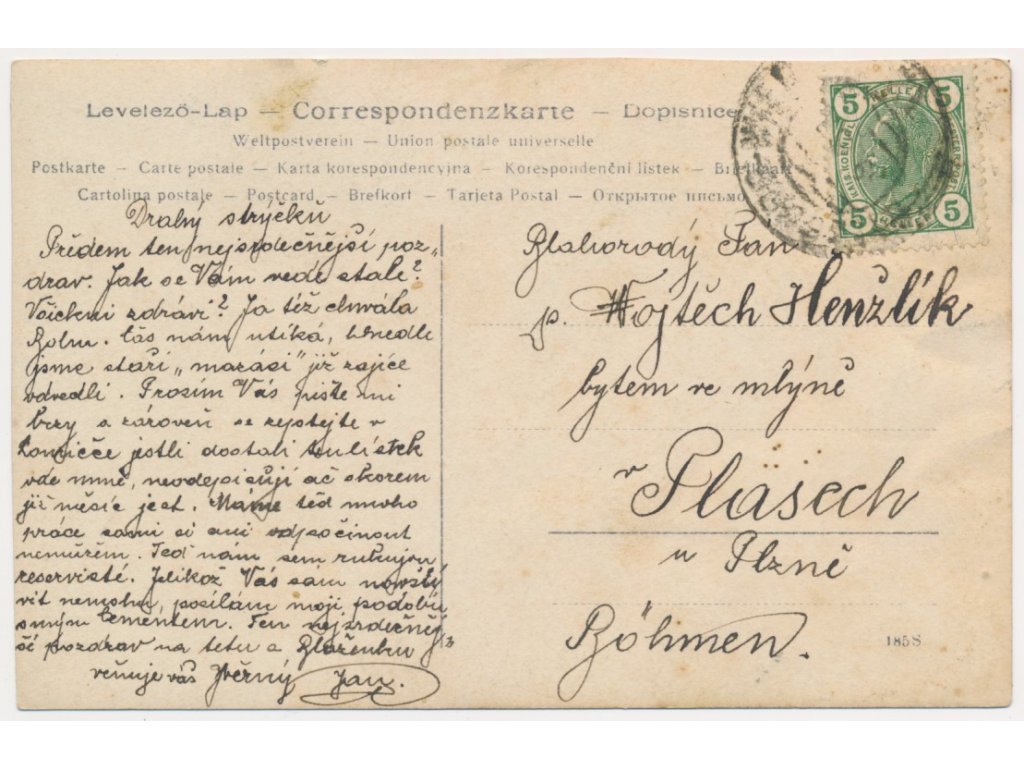 Levelező-Lap – Correspondenzkarte – Dopisnice
Weltpostverein – Union postale universelle
Postkarte – Carte postale – Karta korespondencyjna – Korespondenční listek – Brefkaart
Cartolina postale – Postcard – Brefkort – Tarjeta Postal – Открытое письмо
5 5
5 5
Drahý strýčku
Předem ten nejsrdečnější poz„
drav. Jak se Vám vede stále?
Všickni zdrávi? Ja též chvála
Bohu. Čas nám utíká,
jsme staří „mazáci" již zajíce
odvedli. Prosím Vás pište mi
brzy a zároveň se zeptejte v
jestli dostali ten lístek
ode mně, neodepisují ač skorem
již měsíc jest. Máme teď mnoho
práce sami si ani odpočinout
nemůžem. Teď nám sem rukujou
reservisté. Jelikož Vás sám navští
vit nemohu, posílám moji podobu
s mým Cementem. Ten nejzrdečněj
ší pozdrav na tetu a Blaženku
věnuje vás Věrný Jan.
Blahorodý Pan
p. Wojtěch Henžlík
bytem ve mlýně
v Plasech
u Plzně
Böhmen.
1858